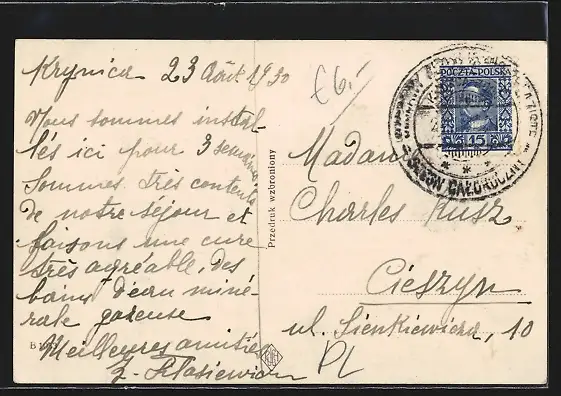 Krynica 23 Août 1930
Nous sommes instal-
lés ici pour 3 semaines
Sommes très contents
de notre séjour et
faisons une cure
très agréable, des
bains d'eau miné-
rale gazeuse
Meilleures amitiés
Przedruk wzbroniony
£6.-
POCZTA POLSKA
15
SEZON CAŁOROCZNY
Madame
Charles Kusz
Cieszyn
ul. Sienkiewicza, 10
PL